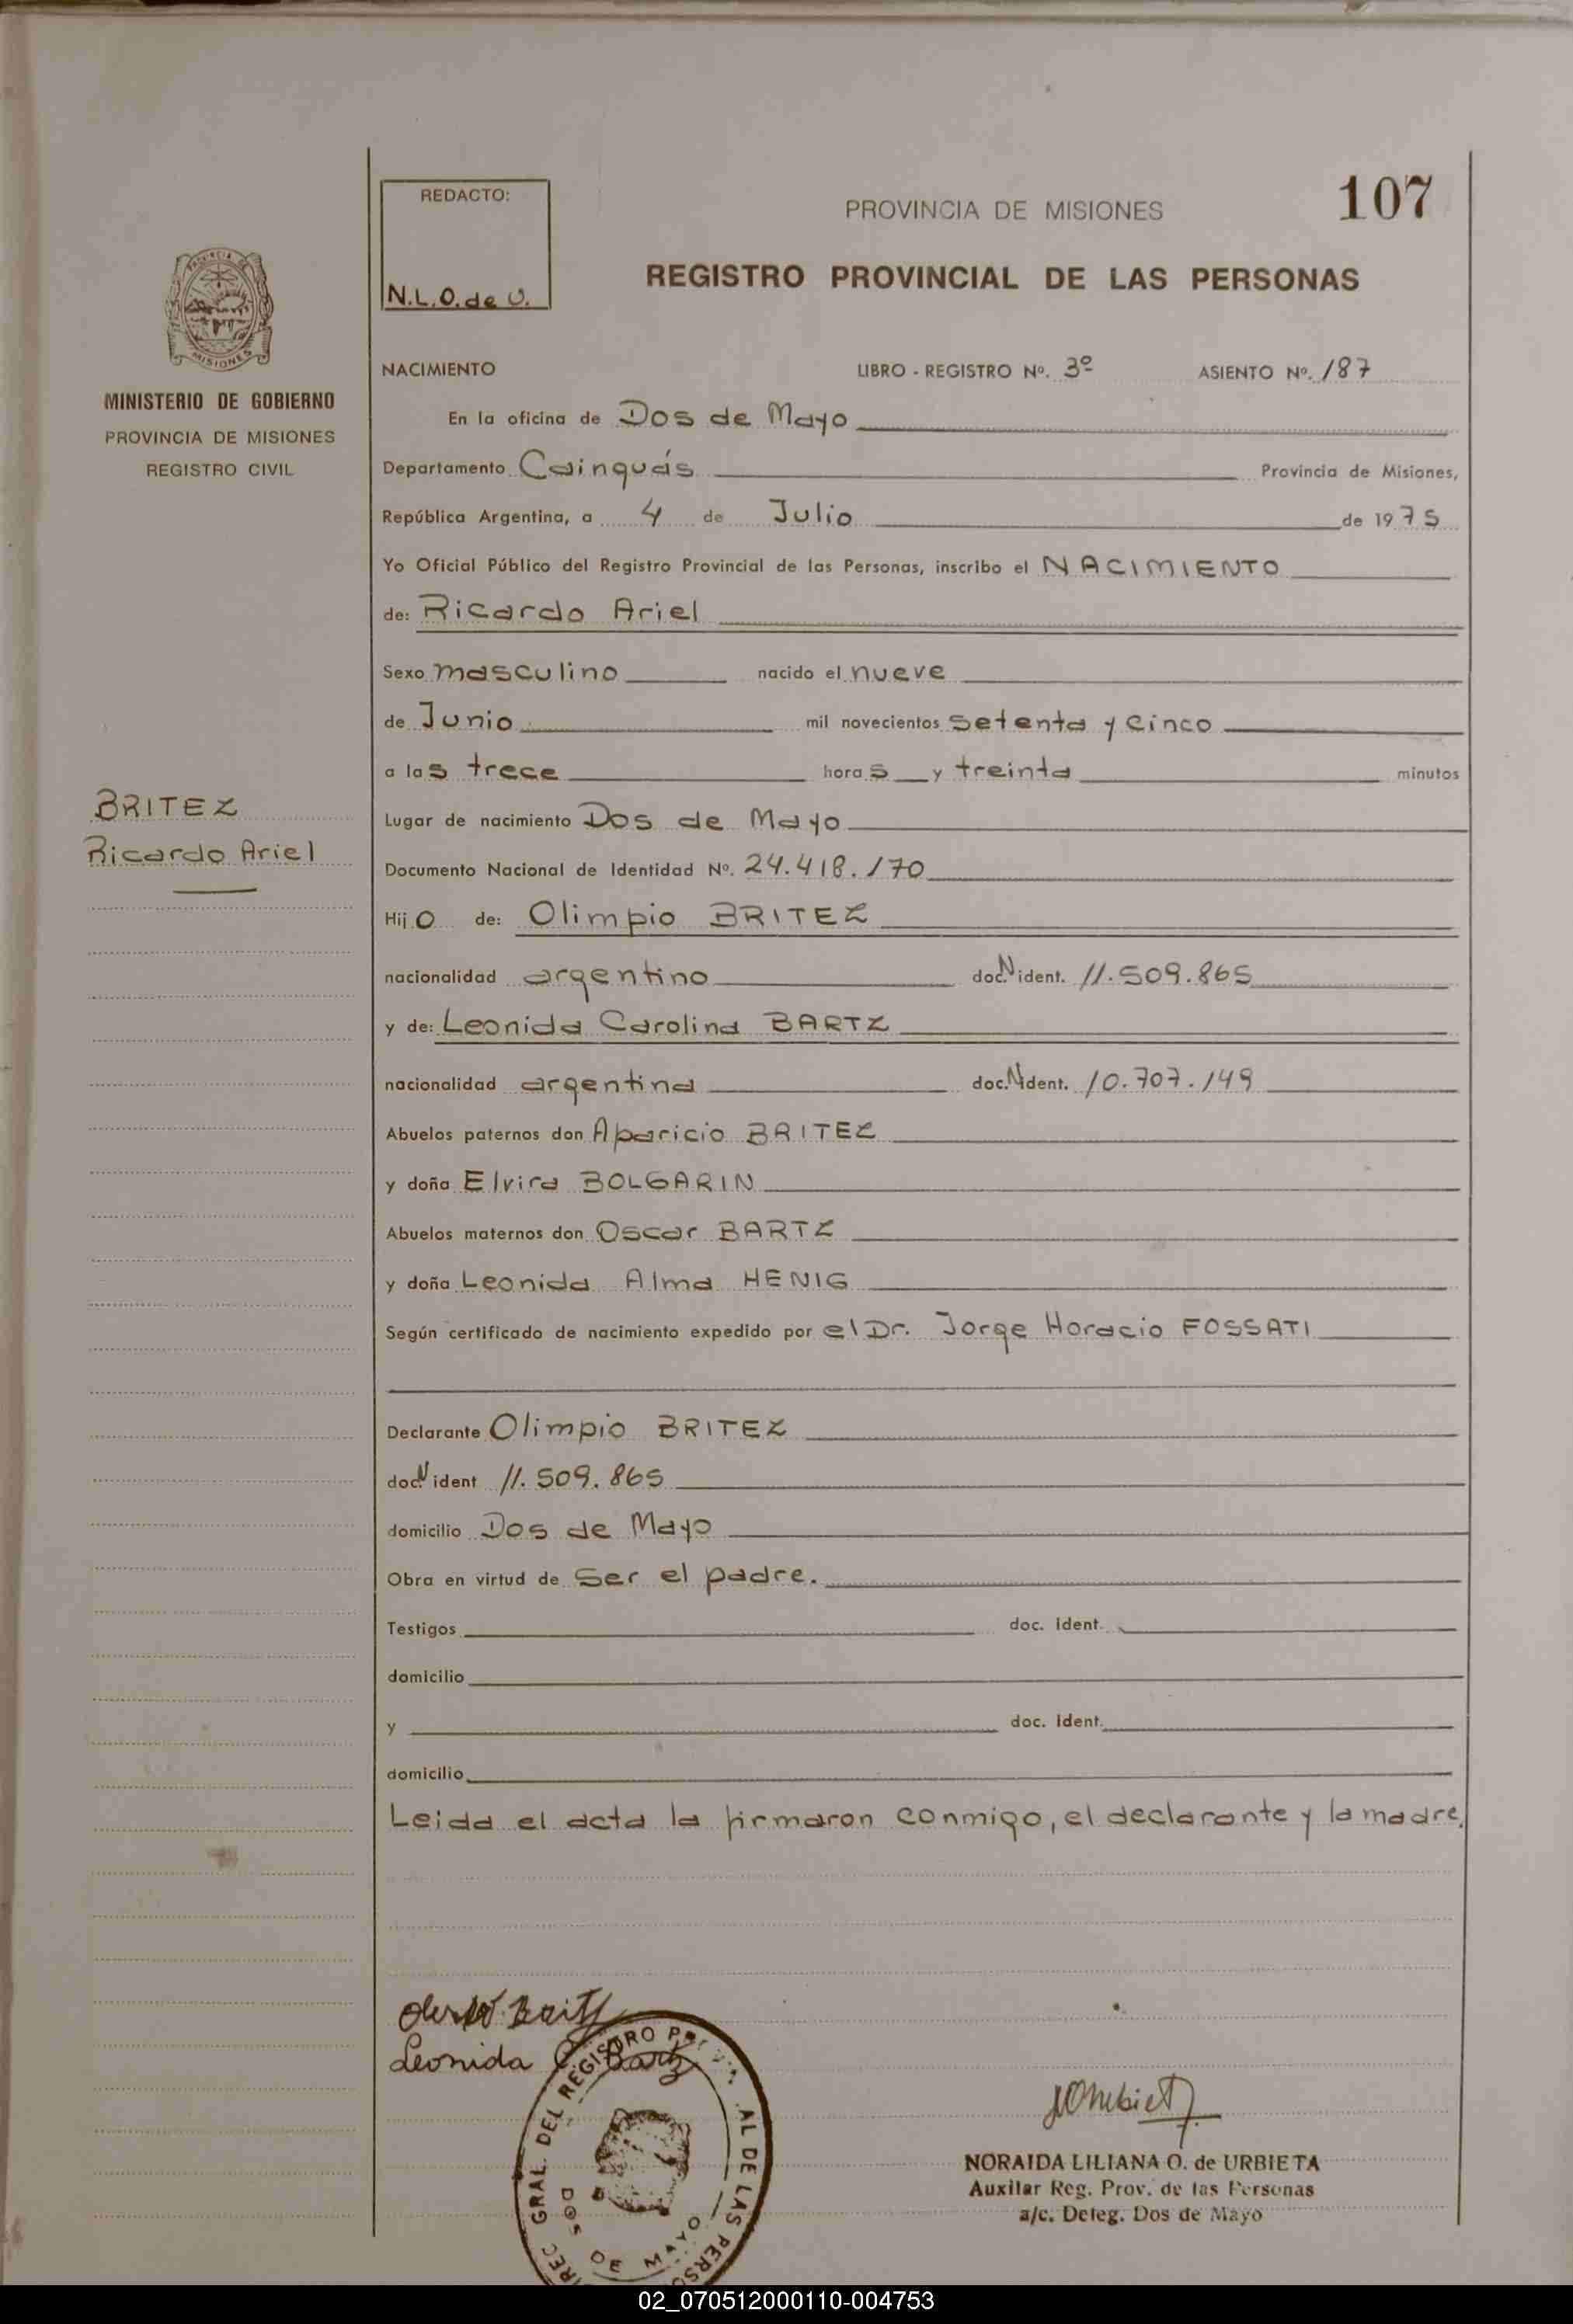 107
REDACTO:
N.L.O. de U.
PROVINCIA DE MISIONES
REGISTRO PROVINCIAL DE LAS PERSONAS
PROVINCIA DE
MISIONES
MINISTERIO DE GOBIERNO
PROVINCIA DE MISIONES
REGISTRO CIVIL
BRITEZ
Ricardo Ariel
NACIMIENTO LIBRO - REGISTRO Nº. 3º ASIENTO Nº. 187
En la oficina de Dos de Mayo
Departamento Cainguás Provincia de Misiones,
República Argentina, a 4 de Julio de 1975
Yo Oficial Público del Registro Provincial de las Personas, inscribo el NACIMIENTO
de: Ricardo Ariel
Sexo masculino nacido el nueve
de Junio mil novecientos setenta y cinco
a las trece horas y treinta minutos
Lugar de nacimiento Dos de Mayo
Documento Nacional de Identidad Nº. 24.418.170
Hijo de: Olimpio BRITEZ
nacionalidad argentino doc.N ident. 11.509.865
y de: Leonida Carolina BARTZ
nacionalidad argentina doc.N ident. 10.707.149
Abuelos paternos don Aparicio BRITEZ
y doña Elvira BOLGARIN
Abuelos maternos don Oscar BARTZ
y doña Leonida Alma HENIG
Según certificado de nacimiento expedido por el Dr. Jorge Horacio FOSSATI
Declarante Olimpio BRITEZ
doc.N ident 11.509.865
domicilio Dos de Mayo
Obra en virtud de ser el padre.
Testigos doc. ident.
domicilio
y doc. ident.
domicilio
Leida el acta la firmaron conmigo, el declarante y la madre.
Leonida C. Bartz
GRAL. DEL REGISTRO AL DE LAS
DOS DE MAYO
NORAIDA LILIANA O. de URBIETA
Auxiliar Reg. Prov. de las Personas
a/c. Deleg. Dos de Mayo
02_070512000110-004753